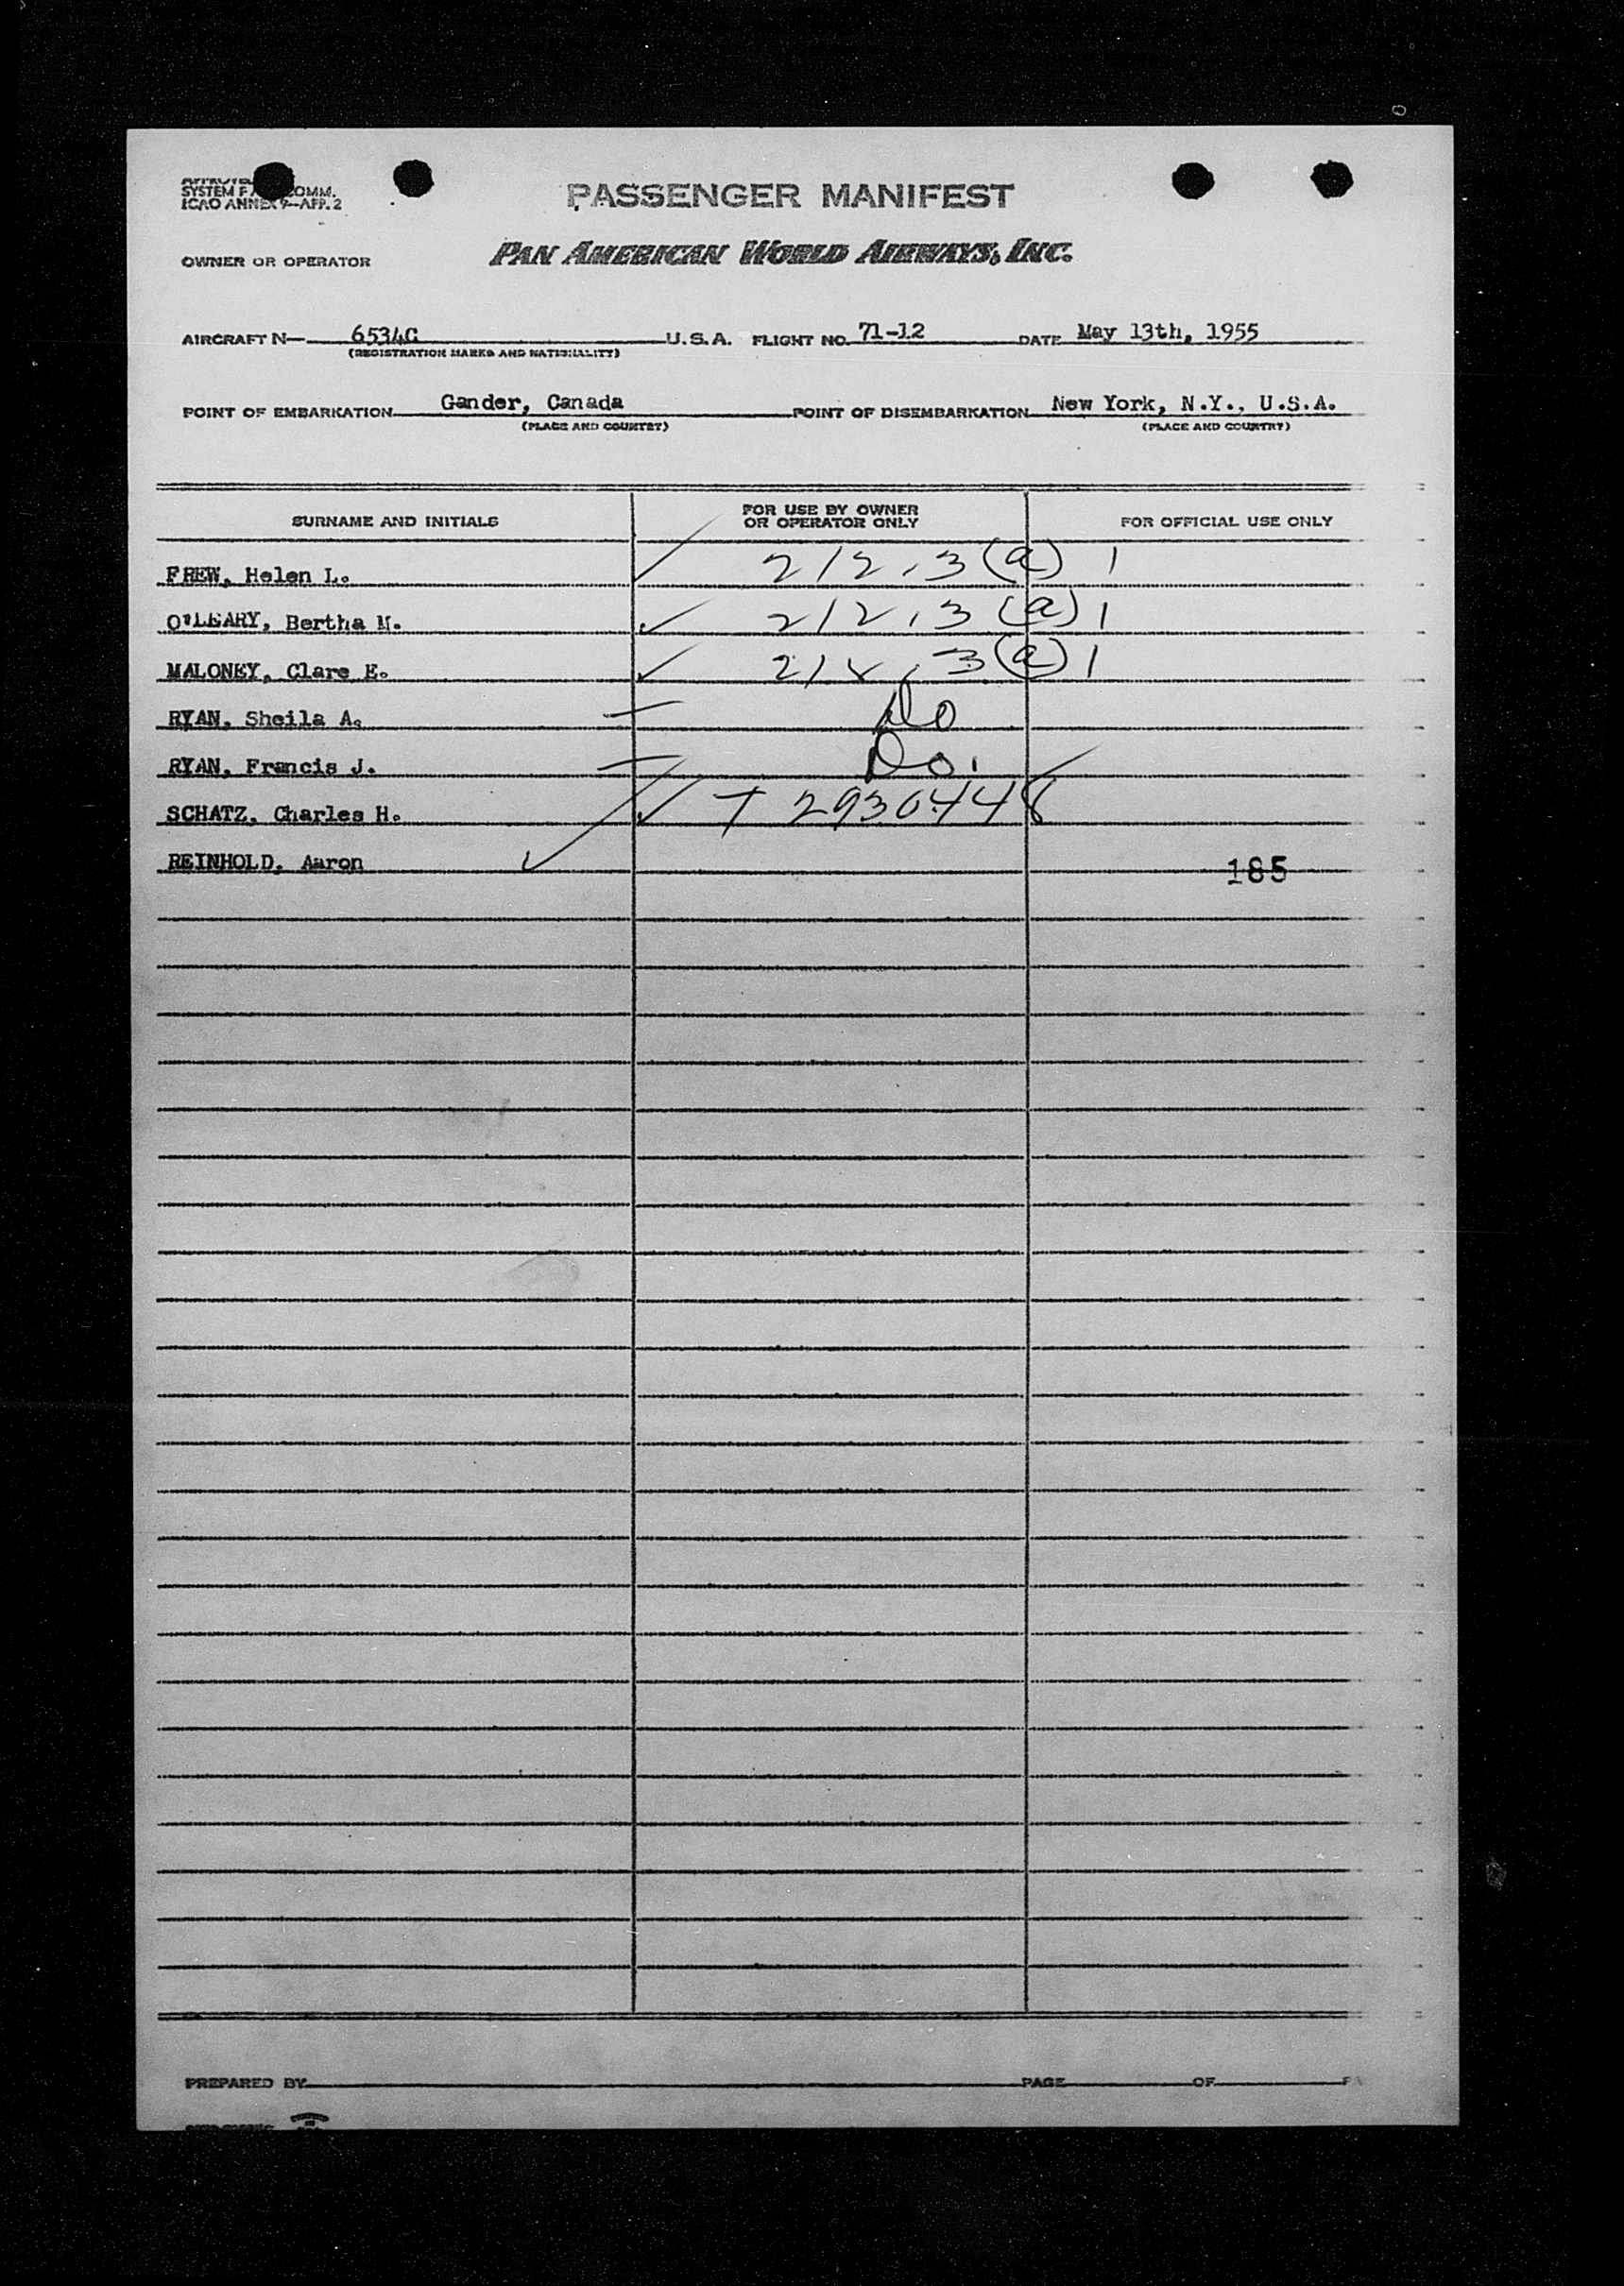 SYSTEM F COMM.
ICAO ANNEX 9—APP. 2
PASSENGER MANIFEST
OWNER OR OPERATOR PAN AMERICAN WORLD AIRWAYS, INC.
AIRCRAFT N— 6534C U.S.A. FLIGHT NO. 71-12 DATE May 13th, 1955
(REGISTRATION MARKS AND NATIONALITY)
POINT OF EMBARKATION Gander, Canada POINT OF DISEMBARKATION New York, N.Y., U.S.A.
(PLACE AND COUNTRY) (PLACE AND COUNTRY)
SURNAME AND INITIALS FOR USE BY OWNER OR OPERATOR ONLY FOR OFFICIAL USE ONLY
FREW, Helen L. ✓ 212.3(a) 1
O'LEARY, Bertha M. ✓ 212.3(a) 1
MALONEY, Clare E. ✓ 212.3(a) 1
RYAN, Sheila A. — Do
RYAN, Francis J. — Do.
SCHATZ, Charles H. ✓ T 2930448
REINHOLD, Aaron ✓ 185
PREPARED BY PAGE OF